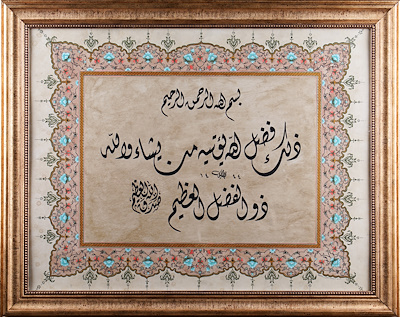 بسم الله الرحمن الرحيم
ذلك فضل الله يؤتيه من يشاء والله
ذو الفضل العظيم